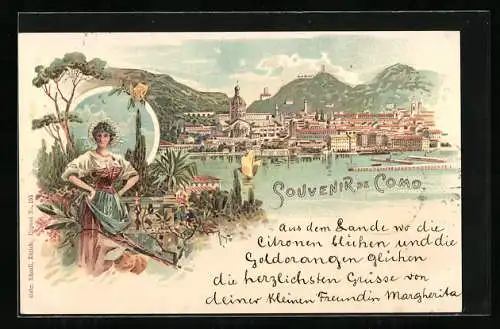 SOUVENIR DE COMO
Aus dem Lande wo die
Citronen blühen und die
Goldorangen glühen
die herzlichsten Grüsse von
deiner kleinen Freundin Margherita
Gebr. Künzli, Zürich,